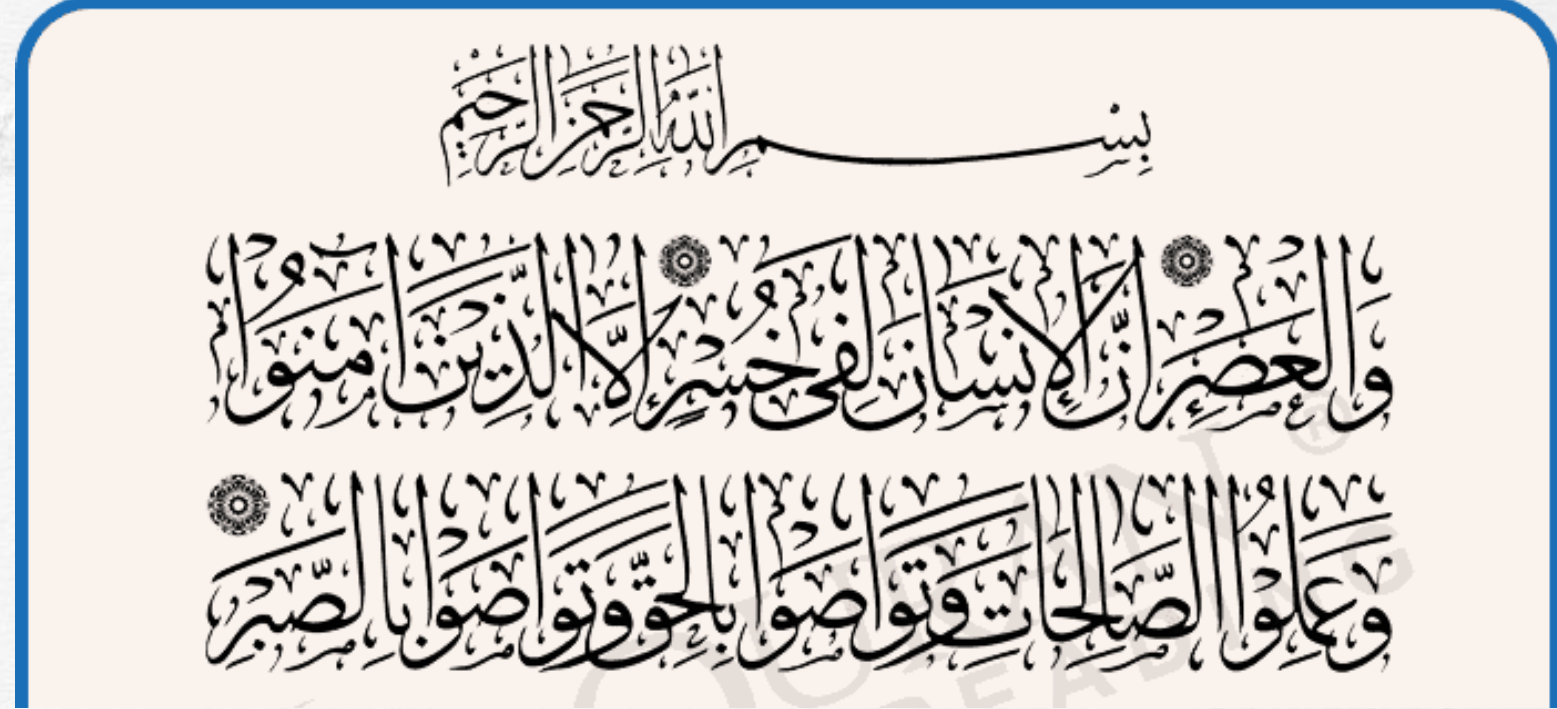 بِسْمِ اللَّهِ الرَّحْمَنِ الرَّحِيمِ
وَالْعَصْرِ إِنَّ الْإِنْسَانَ لَفِي خُسْرٍ إِلَّا الَّذِينَ آمَنُوا
وَعَمِلُوا الصَّالِحَاتِ وَتَوَاصَوْا بِالْحَقِّ وَتَوَاصَوْا بِالصَّبْرِ
QURAN
READING
®